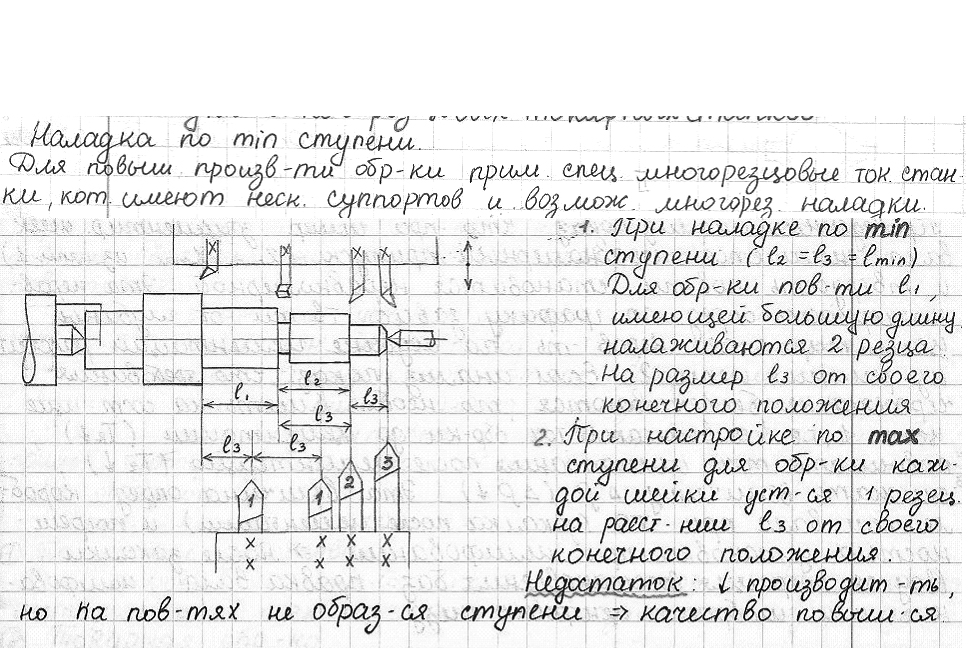 Наладка по min ступени.
Для повыш произв-ти обр-ки прим. спец. многорезцовые ток. стан-
ки, кот. имеют неск. суппортов и возмож. многорез. наладки.
1. При наладке по min
ступени (l2 = l3 = lmin)
Для обр-ки пов-ти l1,
имеющей большую длину
налаживаются 2 резца
На размер l3 от своего
конечного положения
2. При настройке по max
ступени для обр-ки каж-
дой шейки уст-ся 1 резец.
на расст-нии l3 от своего
конечного положения.
Недостаток: ↓ производит-ть,
но на пов-тях не образ-ся ступени ⇒ качество повыш-ся.
x x x x
l1 l2 l3
l3
l3 l3
1 1 2 3
x x x x
x x x x